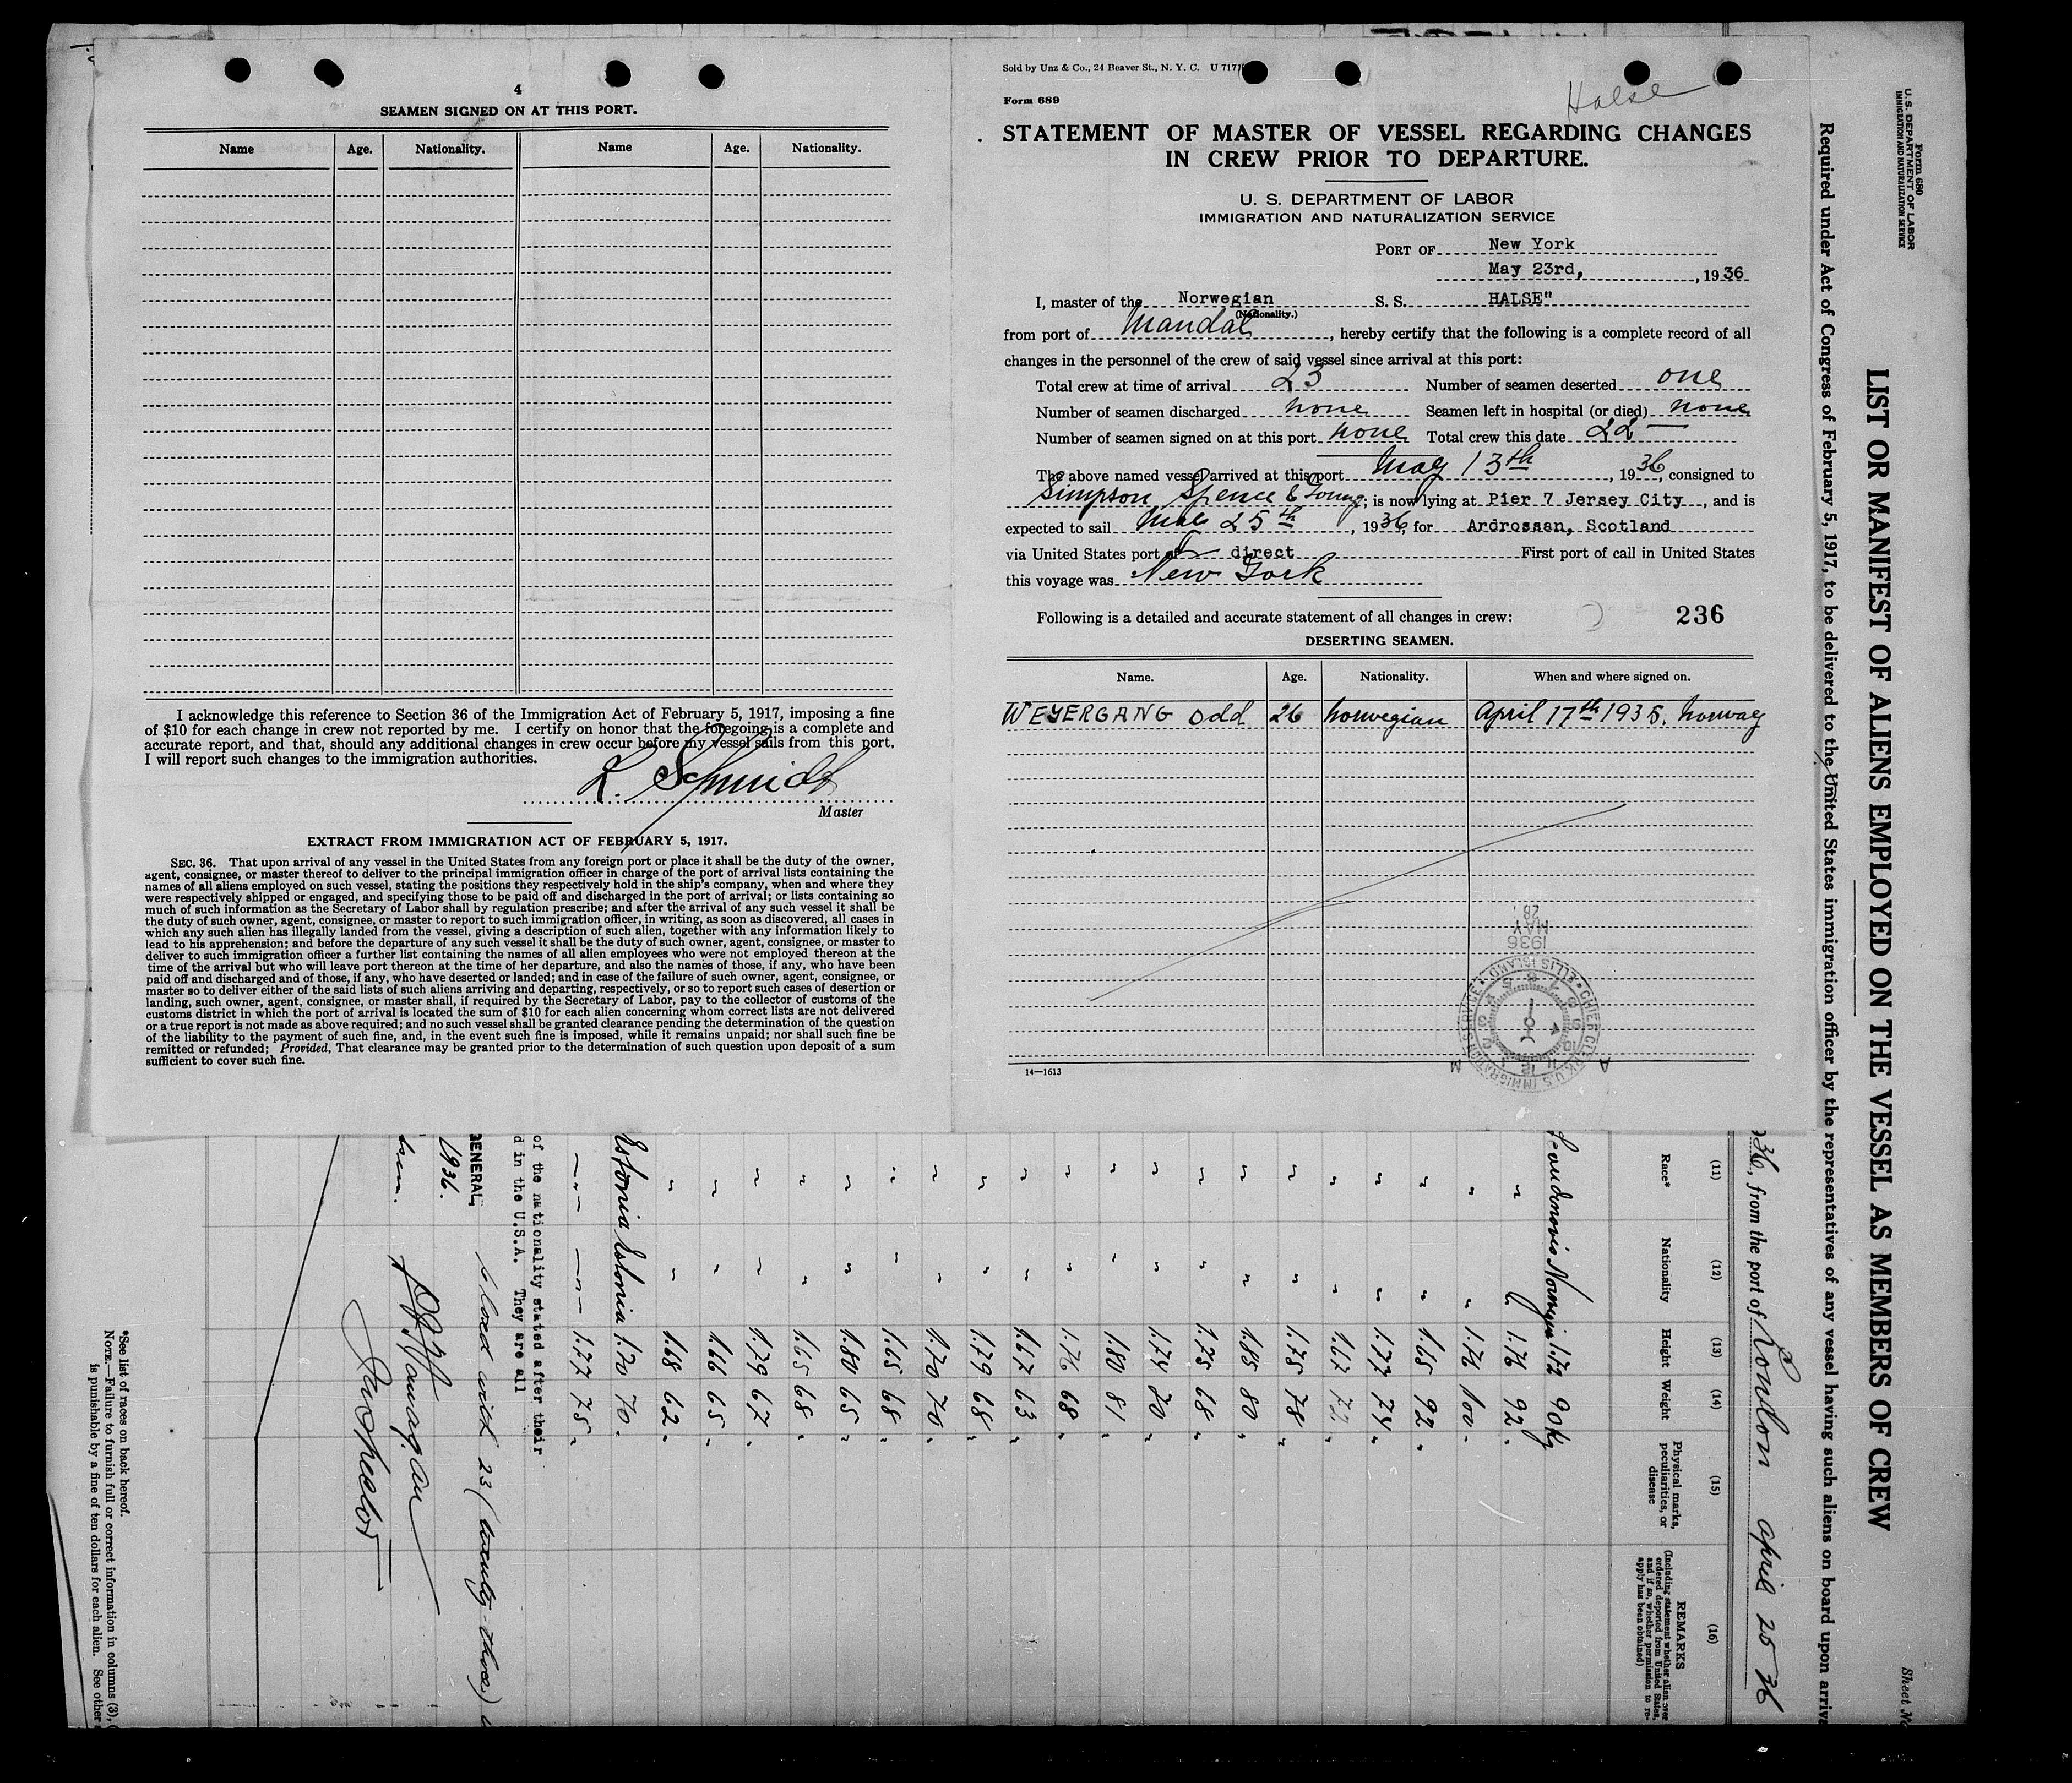 4
SEAMEN SIGNED ON AT THIS PORT.
Name Age. Nationality. Name Age. Nationality.
I acknowledge this reference to Section 36 of the Immigration Act of February 5, 1917, imposing a fine
of $10 for each change in crew not reported by me. I certify on honor that the foregoing is a complete and
accurate report, and that, should any additional changes in crew occur before my vessel sails from this port,
I will report such changes to the immigration authorities.
L. Schmidt
Master
EXTRACT FROM IMMIGRATION ACT OF FEBRUARY 5, 1917.
SEC. 36. That upon arrival of any vessel in the United States from any foreign port or place it shall be the duty of the owner,
agent, consignee, or master thereof to deliver to the principal immigration officer in charge of the port of arrival lists containing the
names of all aliens employed on such vessel, stating the positions they respectively hold in the ship's company, when and where they
were respectively shipped or engaged, and specifying those to be paid off and discharged in the port of arrival; or lists containing so
much of such information as the Secretary of Labor shall by regulation prescribe; and after the arrival of any such vessel it shall be
the duty of such owner, agent, consignee, or master to report to such immigration officer, in writing, as soon as discovered, all cases in
which any such alien has illegally landed from the vessel, giving a description of such alien, together with any information likely to
lead to his apprehension; and before the departure of any such vessel it shall be the duty of such owner, agent, consignee, or master to
deliver to such immigration officer a further list containing the names of all alien employees who were not employed thereon at the
time of the arrival but who will leave port thereon at the time of her departure, and also the names of those, if any, who have been
paid off and discharged and of those, if any, who have deserted or landed; and in case of the failure of such owner, agent, consignee, or
master so to deliver either of the said lists of such aliens arriving and departing, respectively, or so to report such cases of desertion or
landing, such owner, agent, consignee, or master shall, if required by the Secretary of Labor, pay to the collector of customs of the
customs district in which the port of arrival is located the sum of $10 for each alien concerning whom correct lists are not delivered
or a true report is not made as above required; and no such vessel shall be granted clearance pending the determination of the question
of the liability to the payment of such fine, and, in the event such fine is imposed, while it remains unpaid; nor shall such fine be
remitted or refunded; Provided, That clearance may be granted prior to the determination of such question upon deposit of a sum
sufficient to cover such fine.
Sold by Unz & Co., 24 Beaver St., N. Y. C. U 7171
Form 689
Halse
STATEMENT OF MASTER OF VESSEL REGARDING CHANGES
IN CREW PRIOR TO DEPARTURE.
U. S. DEPARTMENT OF LABOR
IMMIGRATION AND NATURALIZATION SERVICE
PORT OF New York
May 23rd, , 1936
I, master of the Norwegian S. S. HALSE"
(Nationality.)
from port of Mandal , hereby certify that the following is a complete record of all
changes in the personnel of the crew of said vessel since arrival at this port:
Total crew at time of arrival 23 Number of seamen deserted one
Number of seamen discharged none Seamen left in hospital (or died) none
Number of seamen signed on at this port none Total crew this date 22
The above named vessel arrived at this port May 13th , 1936, consigned to
Simpson Spence & Young; is now lying at Pier 7 Jersey City , and is
expected to sail May 25th , 1936, for Ardrossen, Scotland
via United States port of direct First port of call in United States
this voyage was New York
Following is a detailed and accurate statement of all changes in crew: 236
DESERTING SEAMEN.
Name. Age. Nationality. When and where signed on.
WEYERGANG Odd 26 Norwegian April 17th 1935. Norway
1936
MAY
28
CHIEF CLERK, U.S. IMMIGRATION SERVICE • ELLIS ISLAND •
A M
14—1613
Form 680
U. S. DEPARTMENT OF LABOR
IMMIGRATION AND NATURALIZATION SERVICE
LIST OR MANIFEST OF ALIENS EMPLOYED ON THE VESSEL AS MEMBERS OF CREW
Required under Act of Congress of February 5, 1917, to be delivered to the United States immigration officer by the representatives of any vessel having such aliens on board upon arriva
36, from the port of London april 25 36
(11) (12) (13) (14) (15) (16)
Race* Nationality Height Weight Physical marks, peculiarities, or disease REMARKS
(Including statement whether alien ever ordered deported from United States, and if so, whether permission to reapply has been obtained)
Norwegian 1.72 90 kg
" 1.76 92 "
" " 1.76 100 "
" " 1.65 92 "
" " 1.77 74 "
" " 1.67 72 "
" " 1.75 78 "
" " 1.85 80 "
" " 1.75 68 "
" " 1.74 70 "
" " 1.80 81 "
" " 1.76 68 "
" " 1.67 63 "
" " 1.79 68 "
" " 1.70 70 "
" " 1.65 68 "
" " 1.80 65 "
" " 1.65 68 "
" " 1.79 67 "
" " 1.66 65 "
" " 1.68 62 "
Estonia Estonia 1.70 70 "
—"— —"— 1.77 75 "
of the nationality stated after their
d in the U.S.A. They are all
GENERAL,
closed with 23 (twenty-three)
1936.
*See list of races on back hereof.
NOTE.—Failure to furnish full or correct information in columns (3), (
is punishable by a fine of ten dollars for each alien. See other
Sheet No